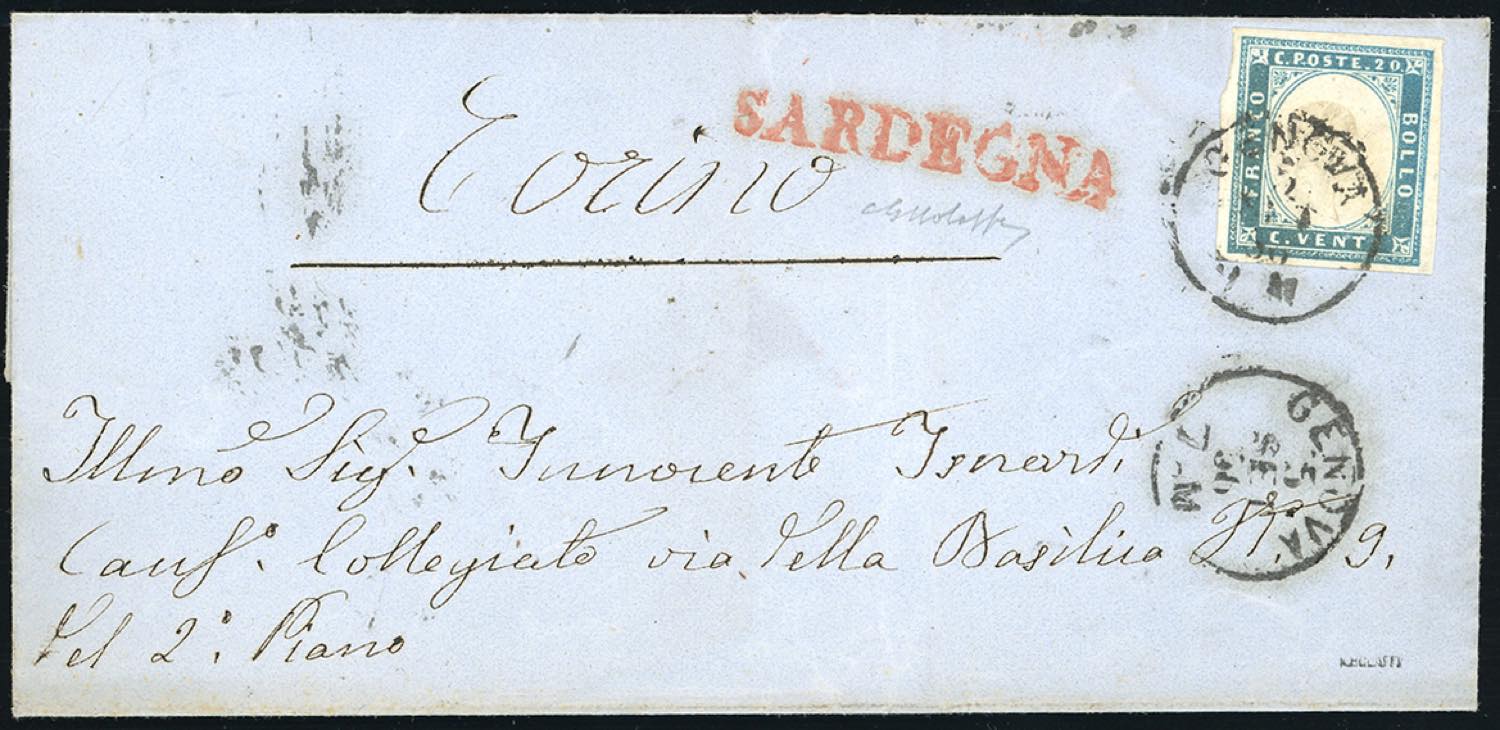 C. POSTE. 20.
FRANCO
BOLLO
C. VENT
SARDEGNA
Torino
GENOVA
GENOVA
5
SET
56
7 M
Illmo Sig. Innocente Isnardi
Collegiato via della Basilica N.º 9.
del 2º. Piano